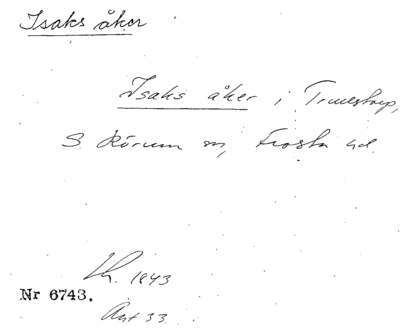 Isaks åker
Isaks åker i Truelstorp,
S. Rörum sn, Frosta hd.
1843
Nr 6743.
33